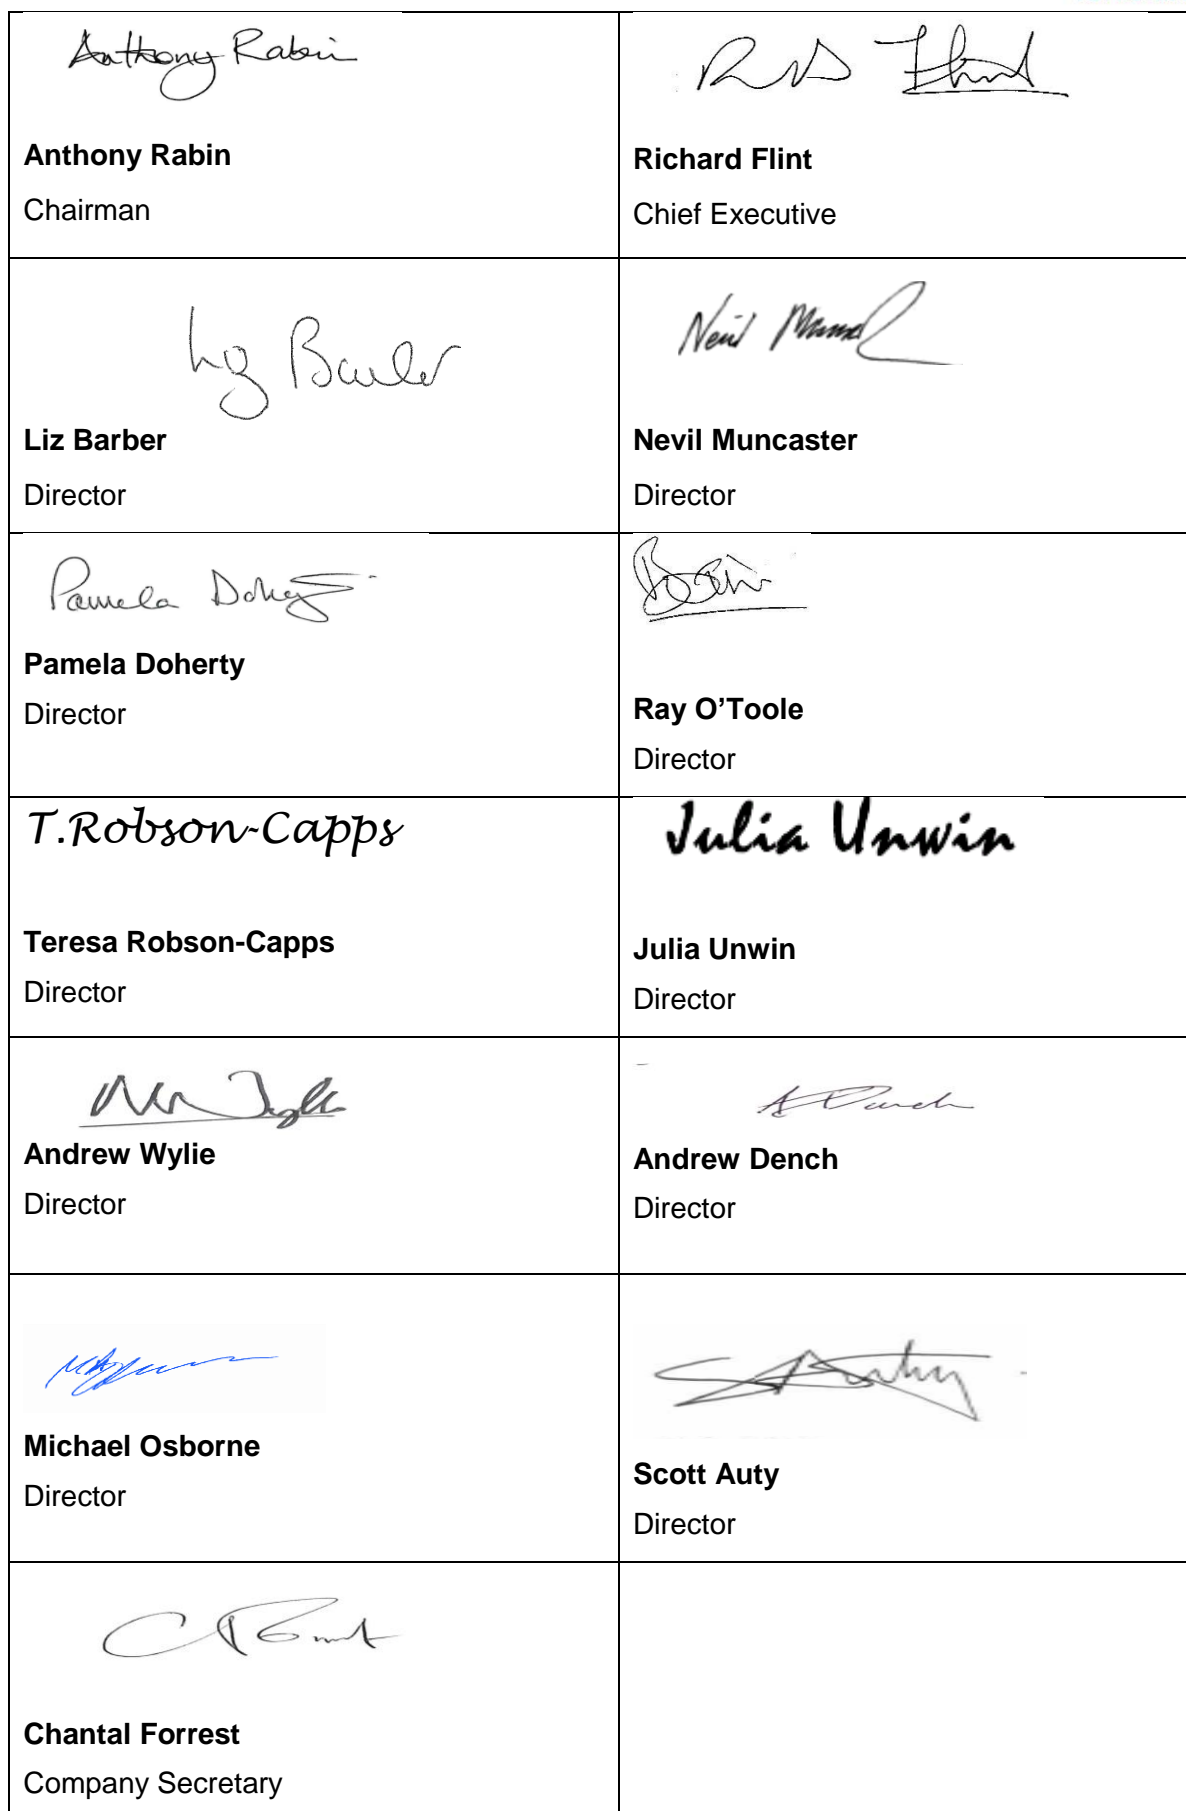 Anthony Rabin
Anthony Rabin
Chairman
Flint
Richard Flint
Chief Executive
Liz Barber
Liz Barber
Director
Nevil
Nevil Muncaster
Director
Pamela Doherty
Pamela Doherty
Director
Ray O’Toole
Director
T.Robson-Capps
Teresa Robson-Capps
Director
Julia Unwin
Julia Unwin
Director
Andrew Wylie
Director
Andrew Dench
Director
Michael Osborne
Director
Scott Auty
Director
Chantal Forrest
Company Secretary